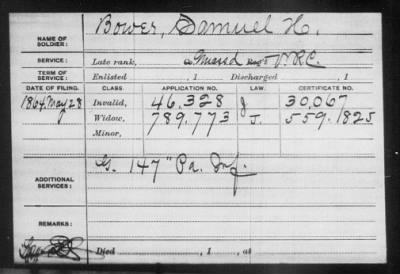 NAME OF SOLDIER: Bower, Samuel H.
SERVICE: Late rank, Reg't V.R.C.
TERM OF SERVICE: Enlisted , 1 Discharged , 1
DATE OF FILING. CLASS. APPLICATION NO. LAW. CERTIFICATE NO.
1864 May 28 Invalid, 46,328 J 30,067
Widow, 789,773 J. 559.1825
Minor,
ADDITIONAL SERVICES: G. 147" Pa. Inf.
REMARKS:
Died , 1 , at